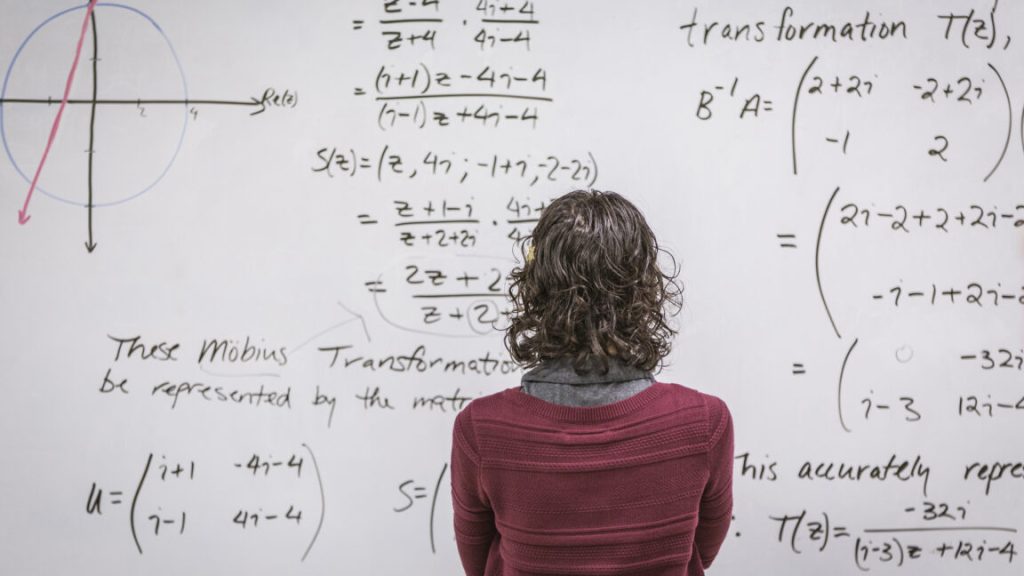 Re(z)
2 4
= z-4/z+4 · 4i+4/4i-4
= (i+1)z-4i-4/(i-1)z+4i-4
S(z)=(z, 4i; -1+i, -2-2i)
= z+1-i/z+2+2i ·
= 2z+2/z+2
These Möbius Transformation
be represented by the
U= (i+1 -4i-4
i-1 4i-4)
S=(
transformation T(z),
B⁻¹A= (2+2i -2+2i
-1 2)
= (2i-2+2+2i-2
-i-1+2i-2
= (0 -32i
i-3 12i-4
This accurately repres
T(z)= -32i/(i-3)z+12i-4